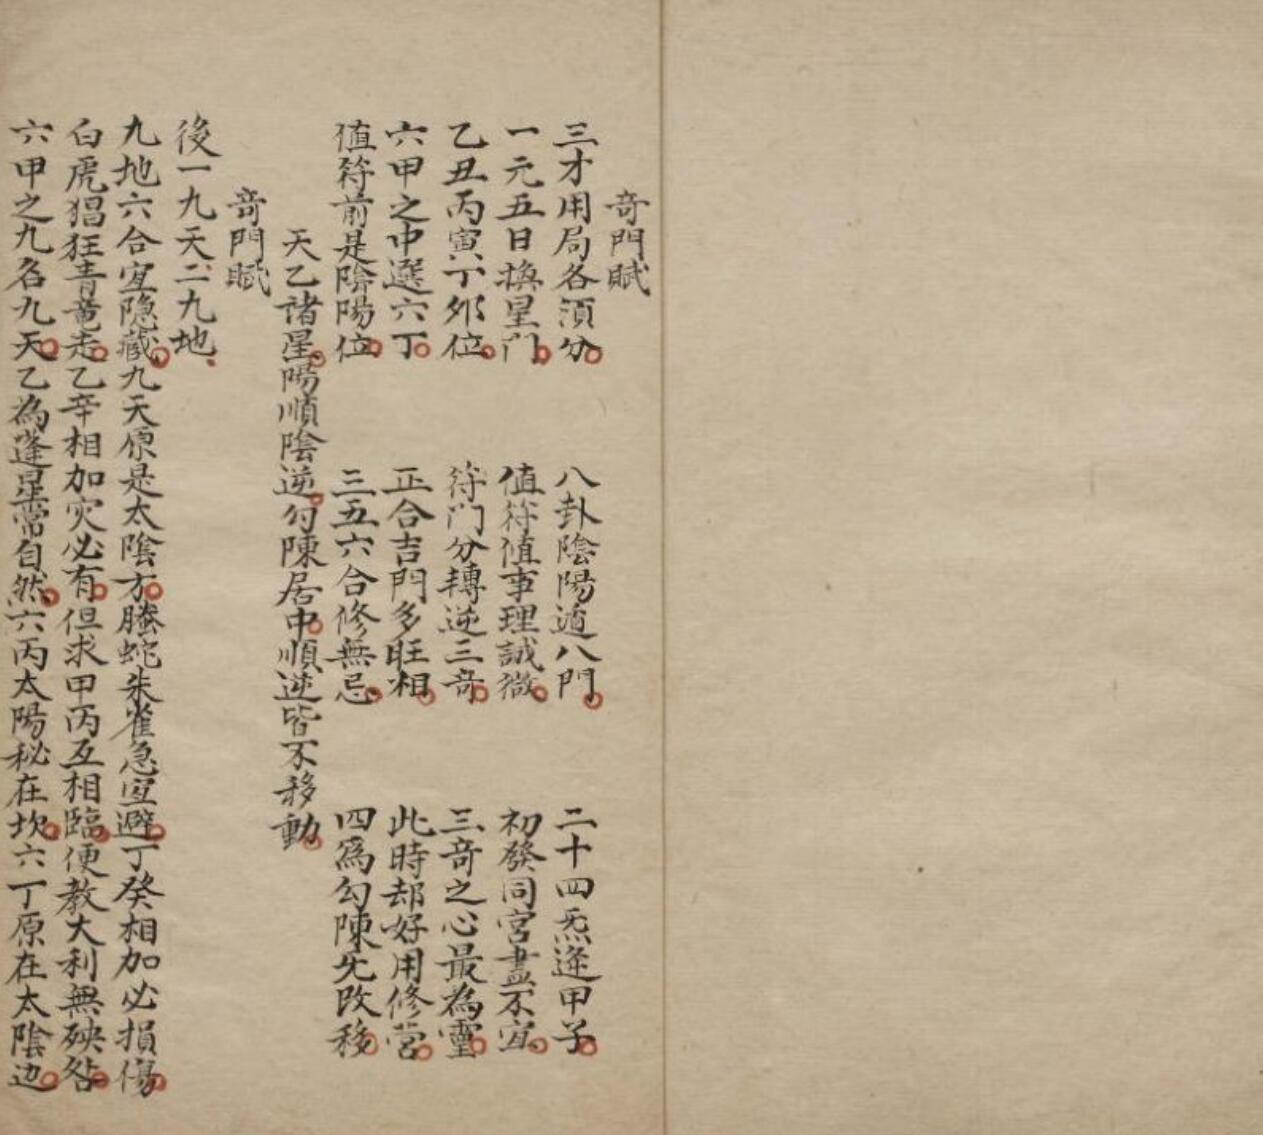 奇門賦
三才用局各須分 八卦陰陽遁八門 二十四炁逢甲子
一元五日換星門 值符值事理誠微 初發同宮盡不宜
乙丑丙寅丁夘位 符門分轉逆三奇 三奇之心最為靈
六甲之中選六丁 正合吉門多旺相 此時却好用修营
值符前是陰陽位 三五六合修無忌 四爲勾陳先改移
天乙諸星陽順陰逆勾陳居中順逆皆不移動
奇門賦
後一九天二九地
九地六合宜隐藏九天原是太陰方螣蛇朱雀急宜避丁癸相加必損傷
白虎猖狂青竜走乙辛相加灾必有但求甲丙互相臨便教大利無殃咎
六甲之九名九天乙為蓬星常自然六丙太陽秘在坎六丁原在太陰边